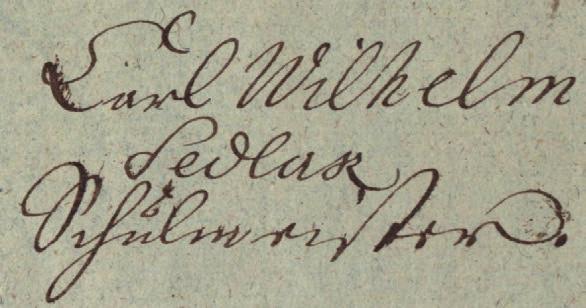 Carl Wilhelm
Sedlak
Schulmeister.